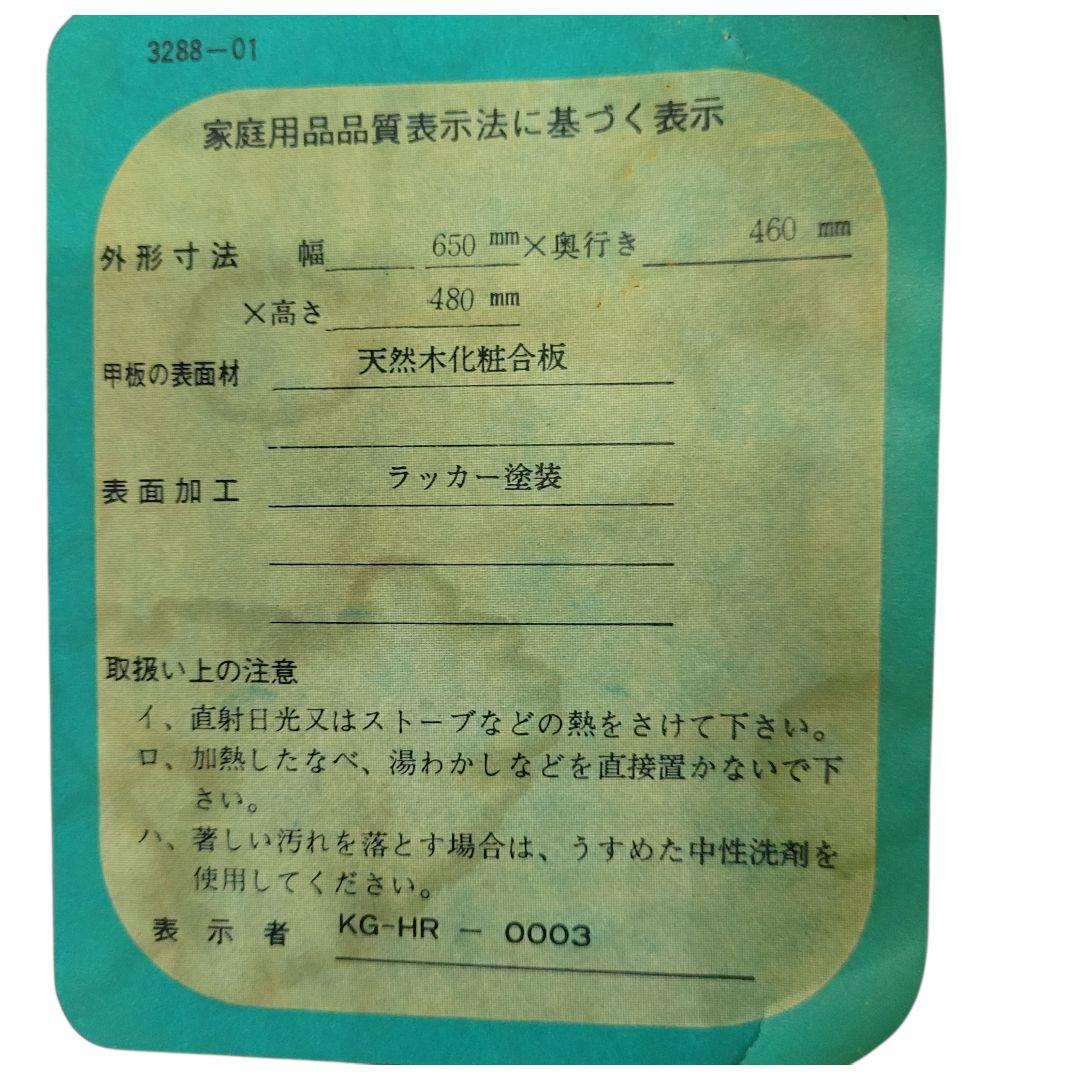 3288-01
家庭用品品質表示法に基づく表示
外形寸法 幅 650 mm×奥行き 460 mm
×高さ 480 mm
甲板の表面材 天然木化粧合板
表面加工 ラッカー塗装
取扱い上の注意
イ、直射日光又はストーブなどの熱をさけて下さい。
ロ、加熱したなべ、湯わかしなどを直接置かないで下
さい。
ハ、著しい汚れを落とす場合は、うすめた中性洗剤を
使用してください。
表示者 KG-HR - 0003